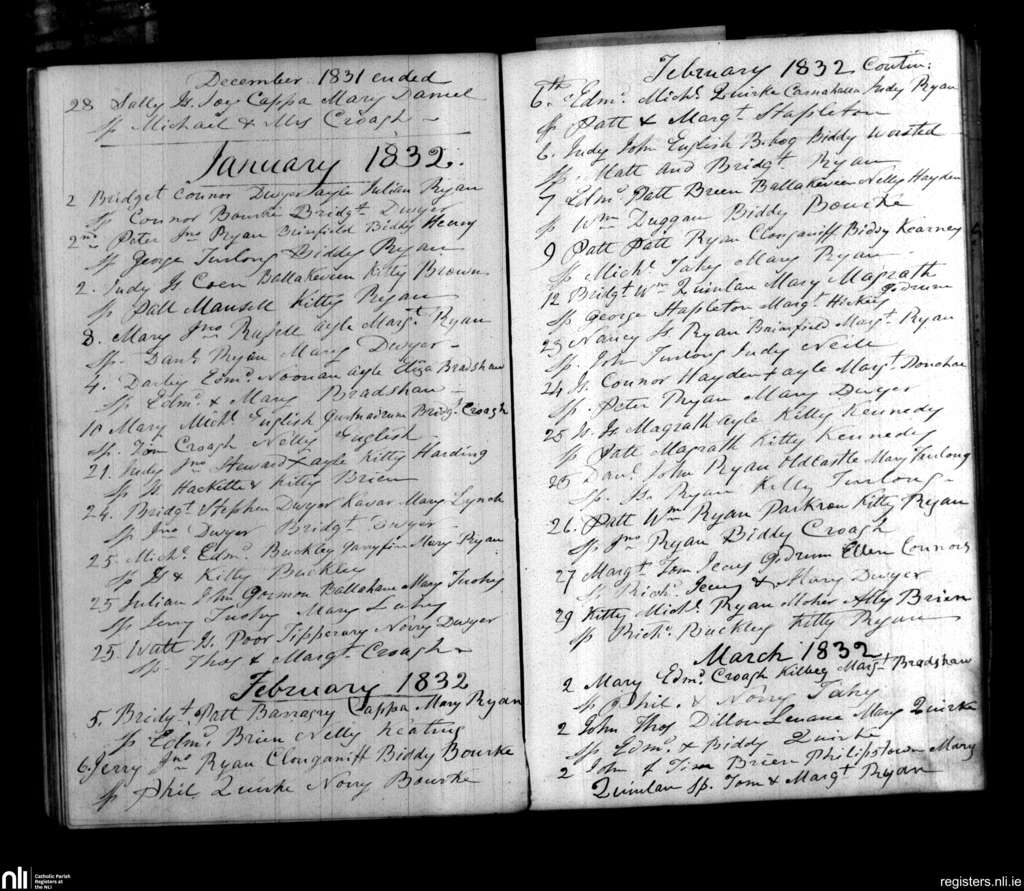 December 1831 ended
28 Sally Js. Foy Cappa Mary Daniel
Sp Michael & Mrs Croagh
January 1832.
2 Bridget Connor Dwyer ayle Julian Ryan
Sp Connor Bourke Bridgt. Dwyer
2nd Peter Jno Ryan Brinfield Biddy Heney
Sp George Furlong & Biddy Ryan
2. Judy Js Coen Ballakeveen Kitty Brown
Sp Patt Mansell Kitty Ryan
8. Mary Jno Russell ayle Margt. Ryan
Sp. Danl. Ryan Mary Dwyer
4. Darby Edmd. Noonan ayle Eliza Bradshaw
Sp Edmd. & Mary Bradshaw
10 Mary Michl. English Bridgt. Croagh
Sp. Tom Croagh Nelly English
21. Judy Jno Steward ayle Kitty Harding
Sp W Hackette & Kitty Brien
24. Bridgt Stephen Dwyer Mary Lynch
Sp Jno Dwyer Bridgt Dwyer
25. Michl. Edmd. Buckley Mary Ryan
Sp Js & Kitty Buckley
25 Julian John Gorman Ballahane Mary Tuohy
Sp Jerry Tuohy Mary Leahy
25. Watt Js. Poor Tipperary Norry Dwyer
Sp. Thos & Margt. Croagh
February 1832
5. Bridgt. Patt Barragry Cappa Mary Ryan
Sp Edmd. Brien Nelly Keating
6. Jerry Jno Ryan Clonganiff Biddy Bourke
Sp Phil Quirke Norry Bourke
February 1832 Contin:
6th Edmd. Michl. Quirke Judy Ryan
Sp Patt & Margt Stapleton
6. Judy John English B.bog Biddy Worsted
Sp Matt and Bridgt. Ryan
7 Edmd. Patt Breen Ballakeveen Nelly Hayden
Sp Wm Duggan Biddy Bourke
9 Patt Patt Ryan Clonganiff Biddy Kearney
Sp Michl. Fahy Mary Ryan
12 Bridgt Wm Quinlan Mary Magrath Gidrum
Sp George Stapleton Margt Hickey
23 Nancy Js Ryan Brinfield Margt. Ryan
Sp. John Furlong Judy Neile
24 Js Connor Hayden ayle Margt. Donohue
Sp. Peter Ryan Mary Dwyer
25 W. Js Magrath ayle Kitty Kennedy
Sp Patt Magrath Kitty Kennedy
25 Danl. John Ryan Oldcastle Mary Furlong
Sp. Js. Ryan Kitty Furlong
26. Patt Wm Ryan Parkroe Kitty Ryan
Sp Jno Ryan & Biddy Croagh
27 Margt. Tom Jeny Gidrum Ellen Connors
Sp Richd. Jeny & Mary Dwyer
29 Kitty Michl. Ryan Moher Atty Brien
Sp Richd. Buckley Kitty Ryan
March 1832
2 Mary Edmd. Croagh Kilbeg Margt. Bradshaw
Sp Phil. & Norry Fahy
2 John Thos Dillon Mary Quirke
Sp Edmd. & Biddy Quirke
2 John & Tim Brien Philipstown Mary
Quinlan Sp. Tom & Margt Ryan
nli Catholic Parish
Registers at
the NLI
registers.nli.ie